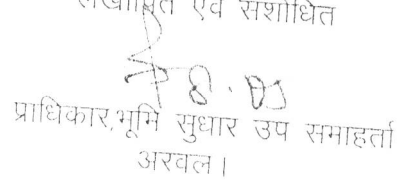 लेखापित एवं संशोधित
प्राधिकार,भूमि सुधार उप समाहर्ता
अरवल।